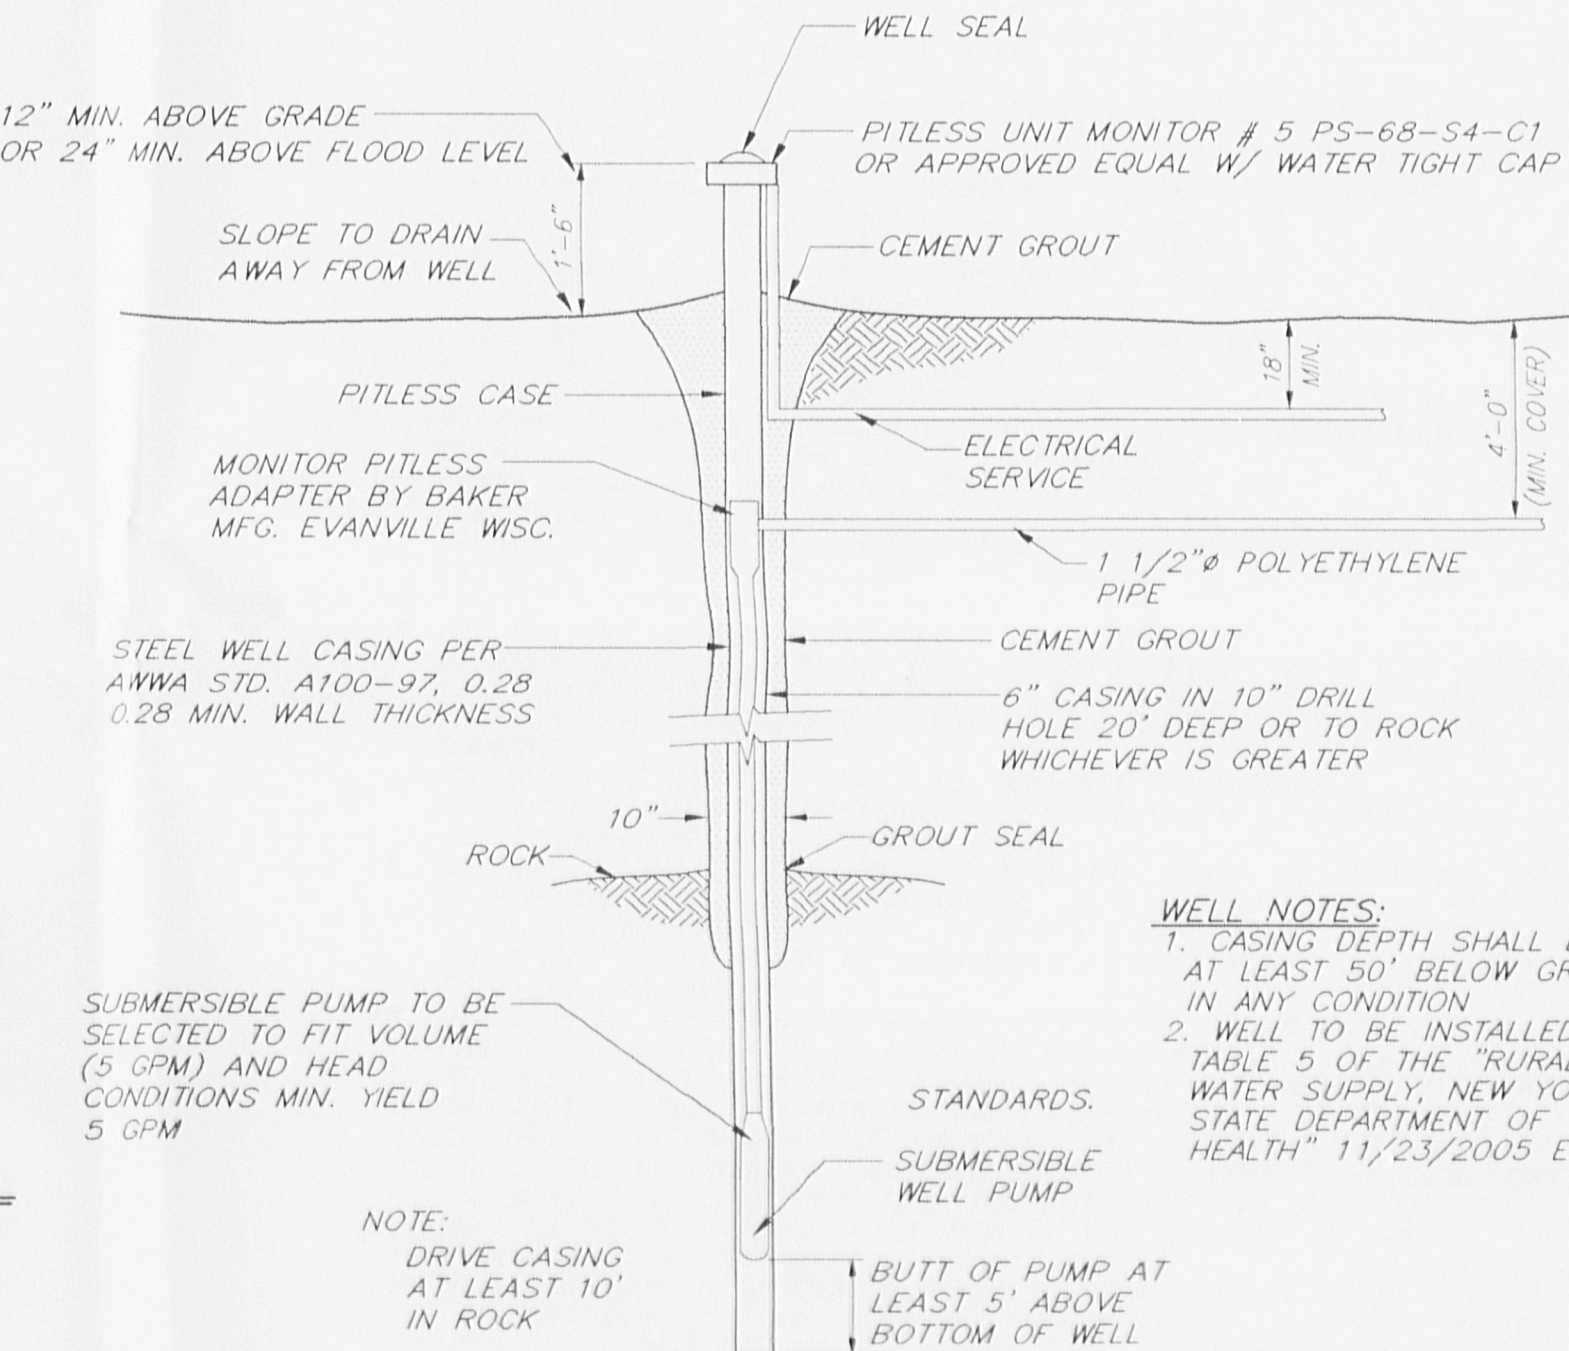 WELL SEAL
12" MIN. ABOVE GRADE
OR 24" MIN. ABOVE FLOOD LEVEL
PITLESS UNIT MONITOR # 5 PS-68-S4-C1
OR APPROVED EQUAL W/ WATER TIGHT CAP
SLOPE TO DRAIN
AWAY FROM WELL
1'-6"
CEMENT GROUT
PITLESS CASE
18"
MIN.
4'-0"
(MIN. COVER)
ELECTRICAL
SERVICE
MONITOR PITLESS
ADAPTER BY BAKER
MFG. EVANVILLE WISC.
1 1/2"ø POLYETHYLENE
PIPE
STEEL WELL CASING PER
AWWA STD. A100-97, 0.28
0.28 MIN. WALL THICKNESS
CEMENT GROUT
6" CASING IN 10" DRILL
HOLE 20' DEEP OR TO ROCK
WHICHEVER IS GREATER
10"
GROUT SEAL
ROCK
WELL NOTES:
1. CASING DEPTH SHALL
AT LEAST 50' BELOW
IN ANY CONDITION
2. WELL TO BE INSTALLED
TABLE 5 OF THE "RURAL
WATER SUPPLY, NEW
STATE DEPARTMENT OF
HEALTH" 11/23/2005
SUBMERSIBLE PUMP TO BE
SELECTED TO FIT VOLUME
(5 GPM) AND HEAD
CONDITIONS MIN. YIELD
5 GPM
STANDARDS.
SUBMERSIBLE
WELL PUMP
NOTE:
DRIVE CASING
AT LEAST 10'
IN ROCK
BUTT OF PUMP AT
LEAST 5' ABOVE
BOTTOM OF WELL